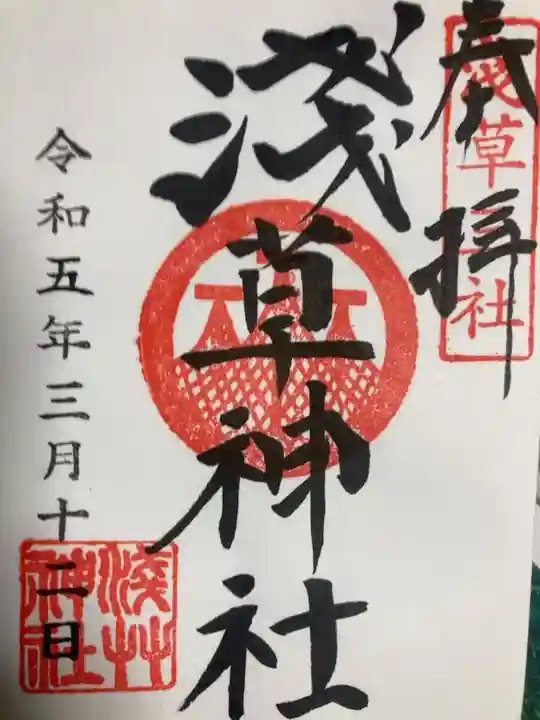 奉拝
浅草
社
淺草神社
令和五年三月十二日
淺艸
神社